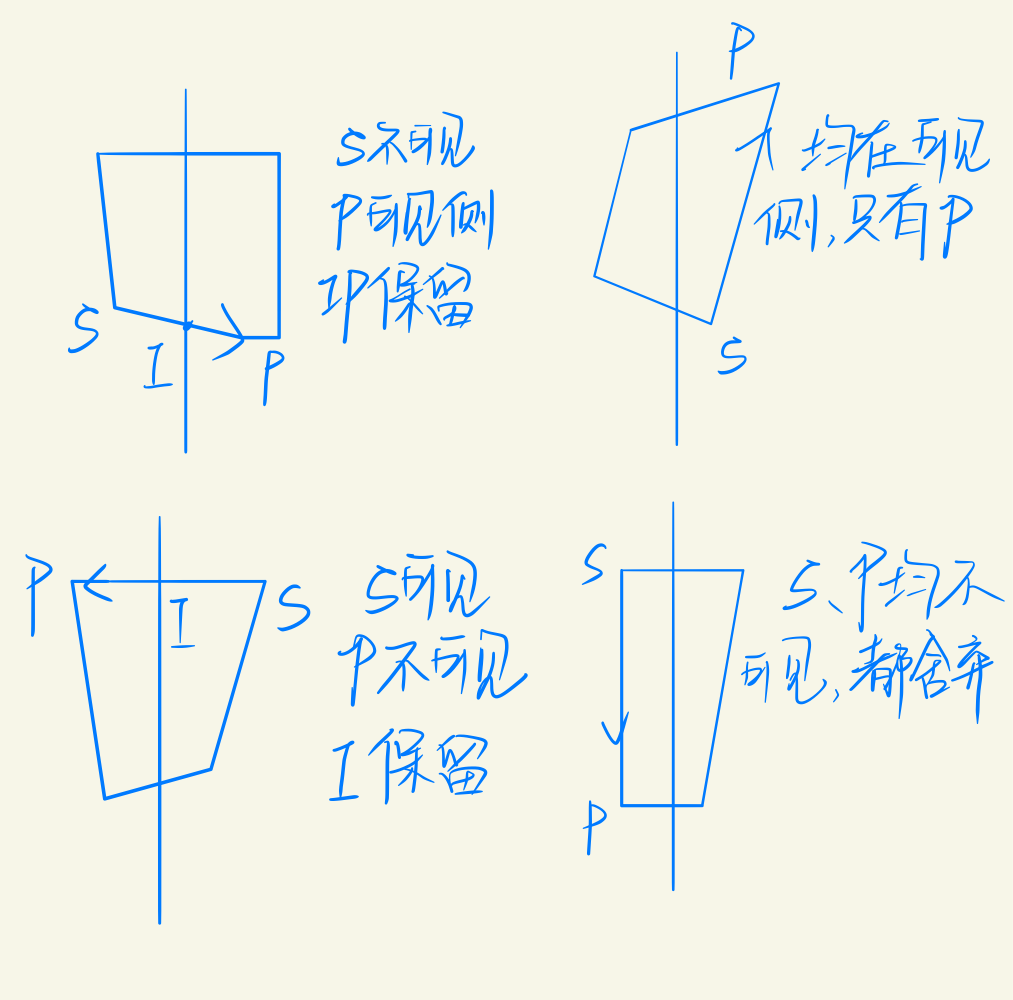 S不可见
P可见侧
IP保留
S
I
P
P
均在可见
侧,只有P
S
P
I
S
S可见
P不可见
I保留
S
S、P均不
可见,都舍弃
P